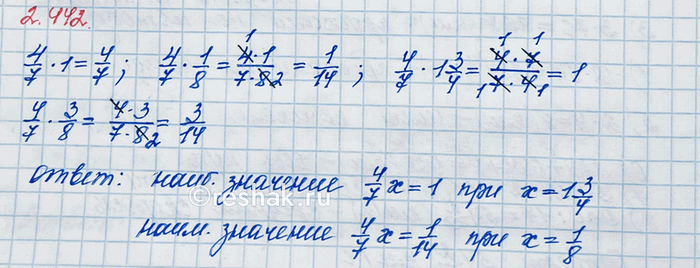 2.442.
4/7 · 1 = 4/7; 4/7 · 1/8 = 4·1/7·8 2 = 1/14; 4/7 · 1 3/4 = 4·7/7·4 = 1
4/7 · 3/8 = 4·3/7·8 2 = 3/14
Ответ: наиб. значение 4/7 x = 1 при x = 1 3/4
reshak.ru
наим. значение 4/7 x = 1/14 при x = 1/8